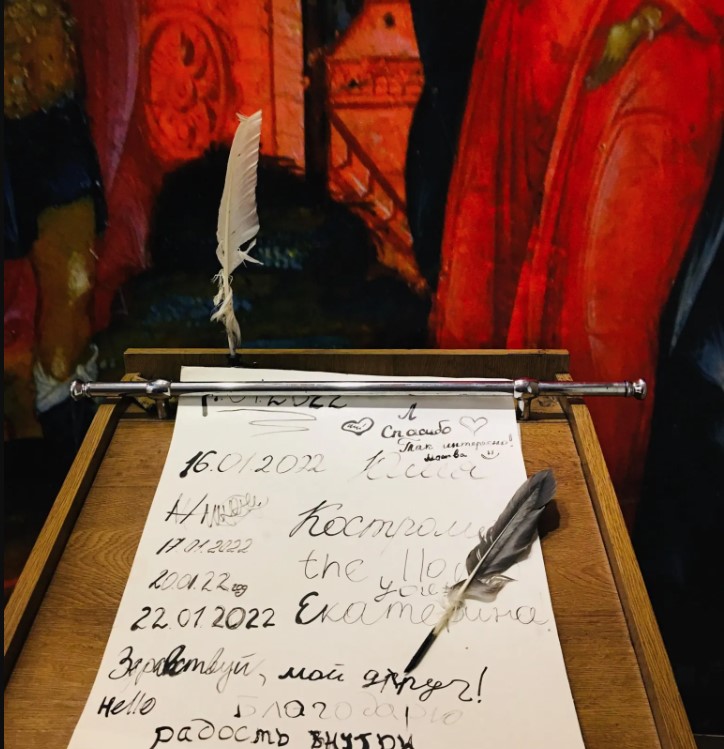 .01.2022
Спасибо
Так интересно!
Москва
16.01.2022 Юлия
17.01.2022 Костром
the
20.01.22 you
22.01.2022 Екатерина
Здравствуй, мой друг!
Hello Благодарю
радость внутри